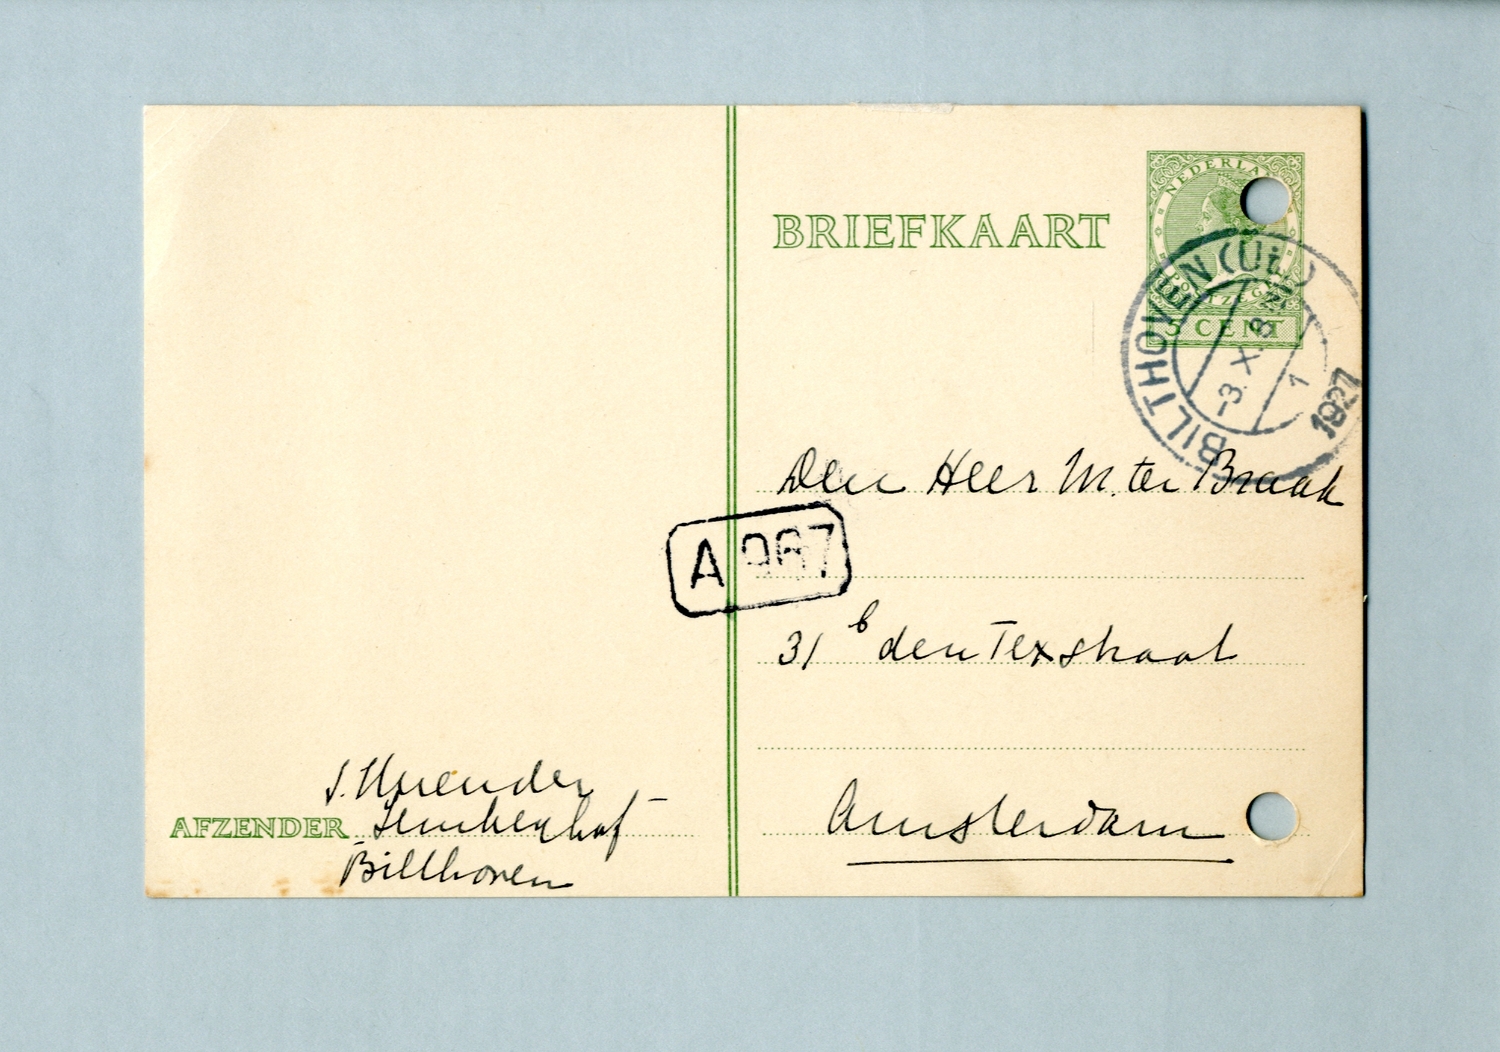 BRIEFKAART
NEDERLA
POSTZEGEL
5 CENT
BILTHOVEN (Ut.)
-3.X.8
1
1927
Den Heer M. ter Braak
A 967
31 b den Texstraat
Amsterdam
AFZENDER
Bilthoven